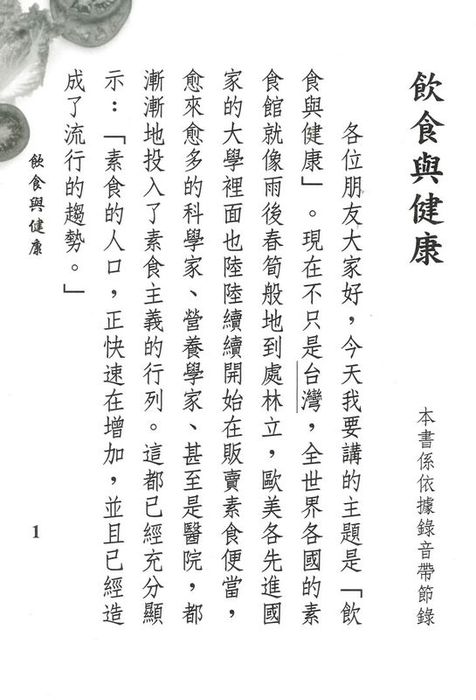 飲食與健康
本書係依據錄音帶節錄
各位朋友大家好，今天我要講的主題是「飲
食與健康」。現在不只是台灣，全世界各國的素
食館就像雨後春筍般地到處林立，歐美各先進國
家的大學裡面也陸陸續續開始在販賣素食便當，
愈來愈多的科學家、營養學家、甚至是醫院，都
漸漸地投入了素食主義的行列。這都已經充分顯
示：「素食的人口，正快速在增加，並且已經造
成了流行的趨勢。」
飲食與健康
1